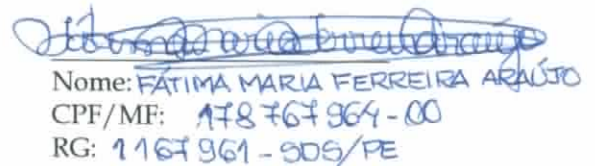 Nome: FÁTIMA MARIA FERREIRA ARAÚJO
CPF/MF: 178767964-00
RG: 1167961-SDS/PE